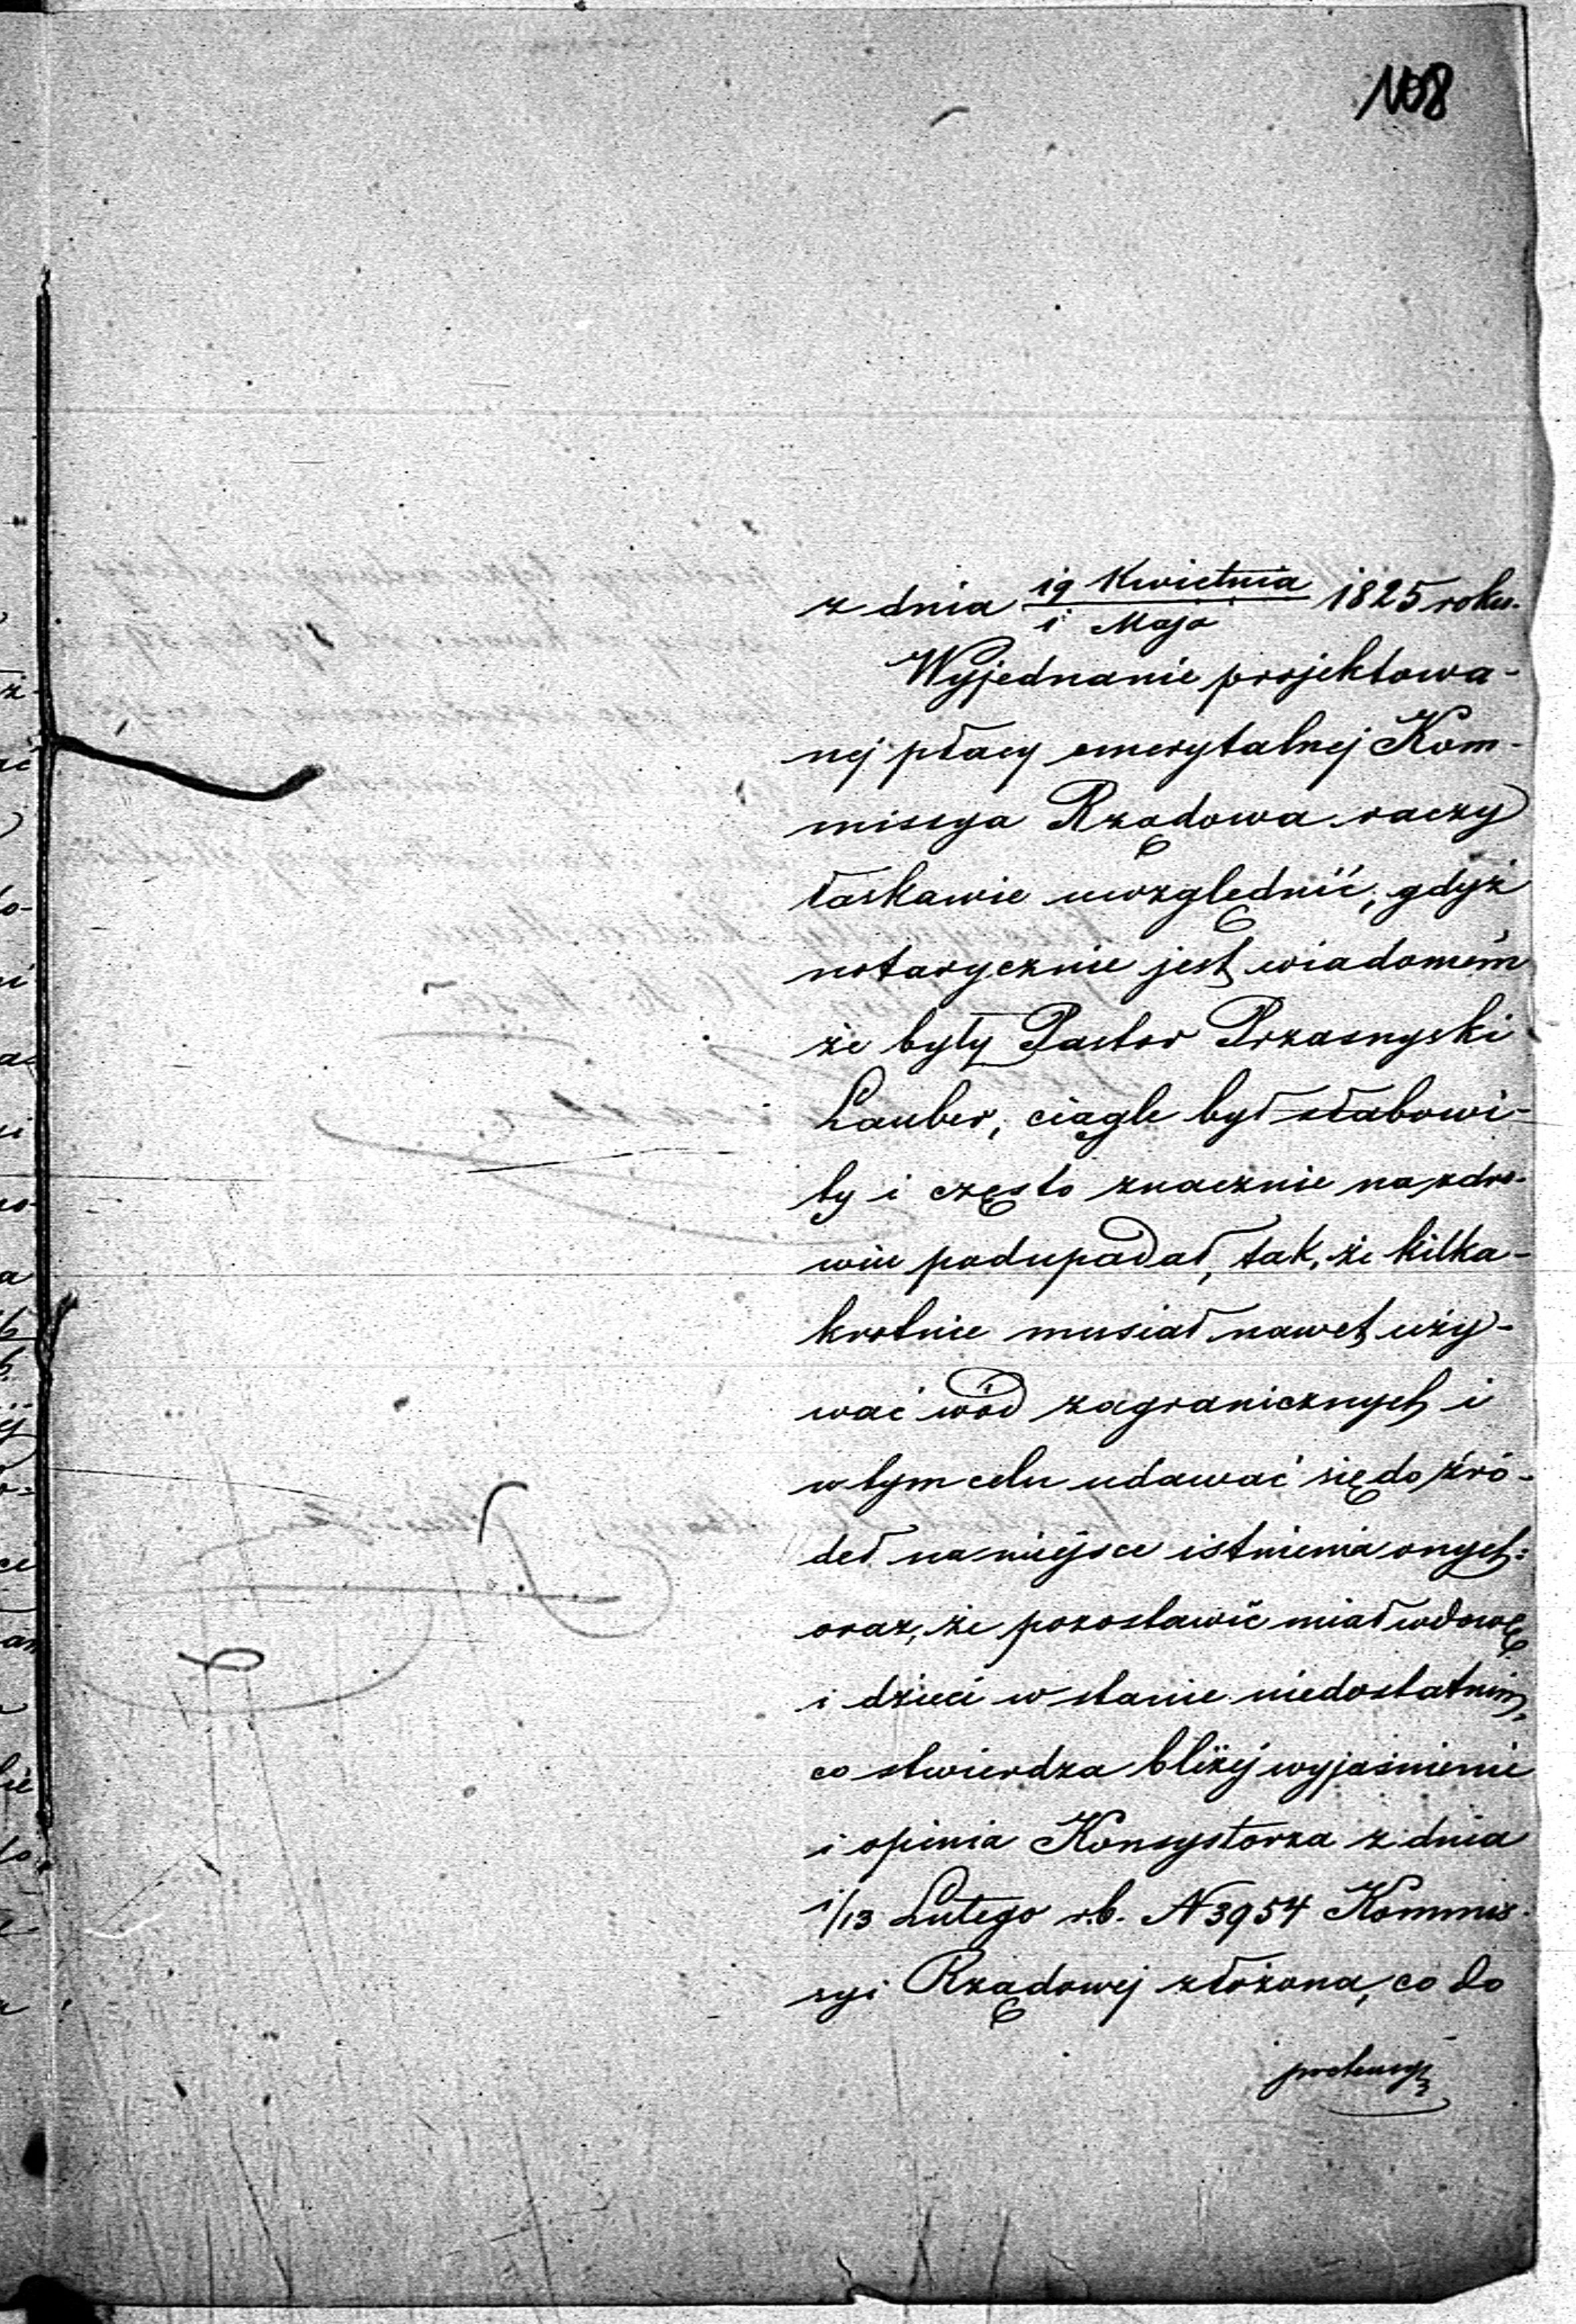 108
z dnia 19 Kwietnia / 1 Maja 1825 roku.
Wyjednanie projektowa-
nej płacy emerytalnej Kom-
missya Rządowa raczy
łaskawie uwzględnić, gdyż
notarycznie jest wiadomém
że były Pastor Przasnyski
Lauber, ciągle był słabowi-
ty i często znacznie na zdro-
wiu podupadał, tak, że kilka-
krotnie musiał nawet uży-
wać wód zagranicznych i
w tym celu udawać się do źró-
deł na miejsce istnienia onych:
oraz, że pozostawić miał wdowę
i dzieci w stanie niedostatnim,
co stwierdza bliżéj wyjaśnienie
i opinia Konsystorza z dnia
1/13 Lutego r.b. N 3954 Kommis-
syi Rządowej złożona, co do